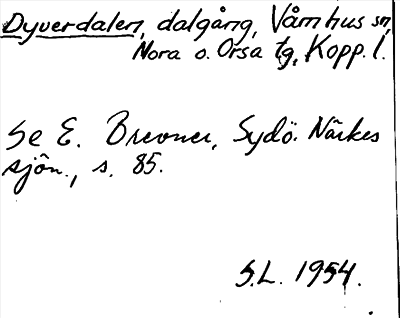 Dyverdalen, dalgång, Våmhus sn,
Nora o. Orsa tg, Kopp. l.
Se E. Brevner, Sydö. Närkes
sjön., s. 85.
S.L. 1954.